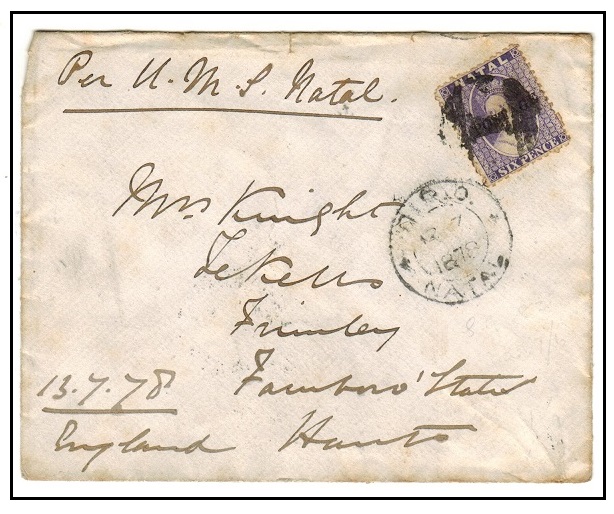 Per U. M. S. Natal.
NATAL
SIX PENCE
Mrs Knight
Tekells
Frimley
Farnboro' Statn
Hants
England
13.7.78
1878
NATAL